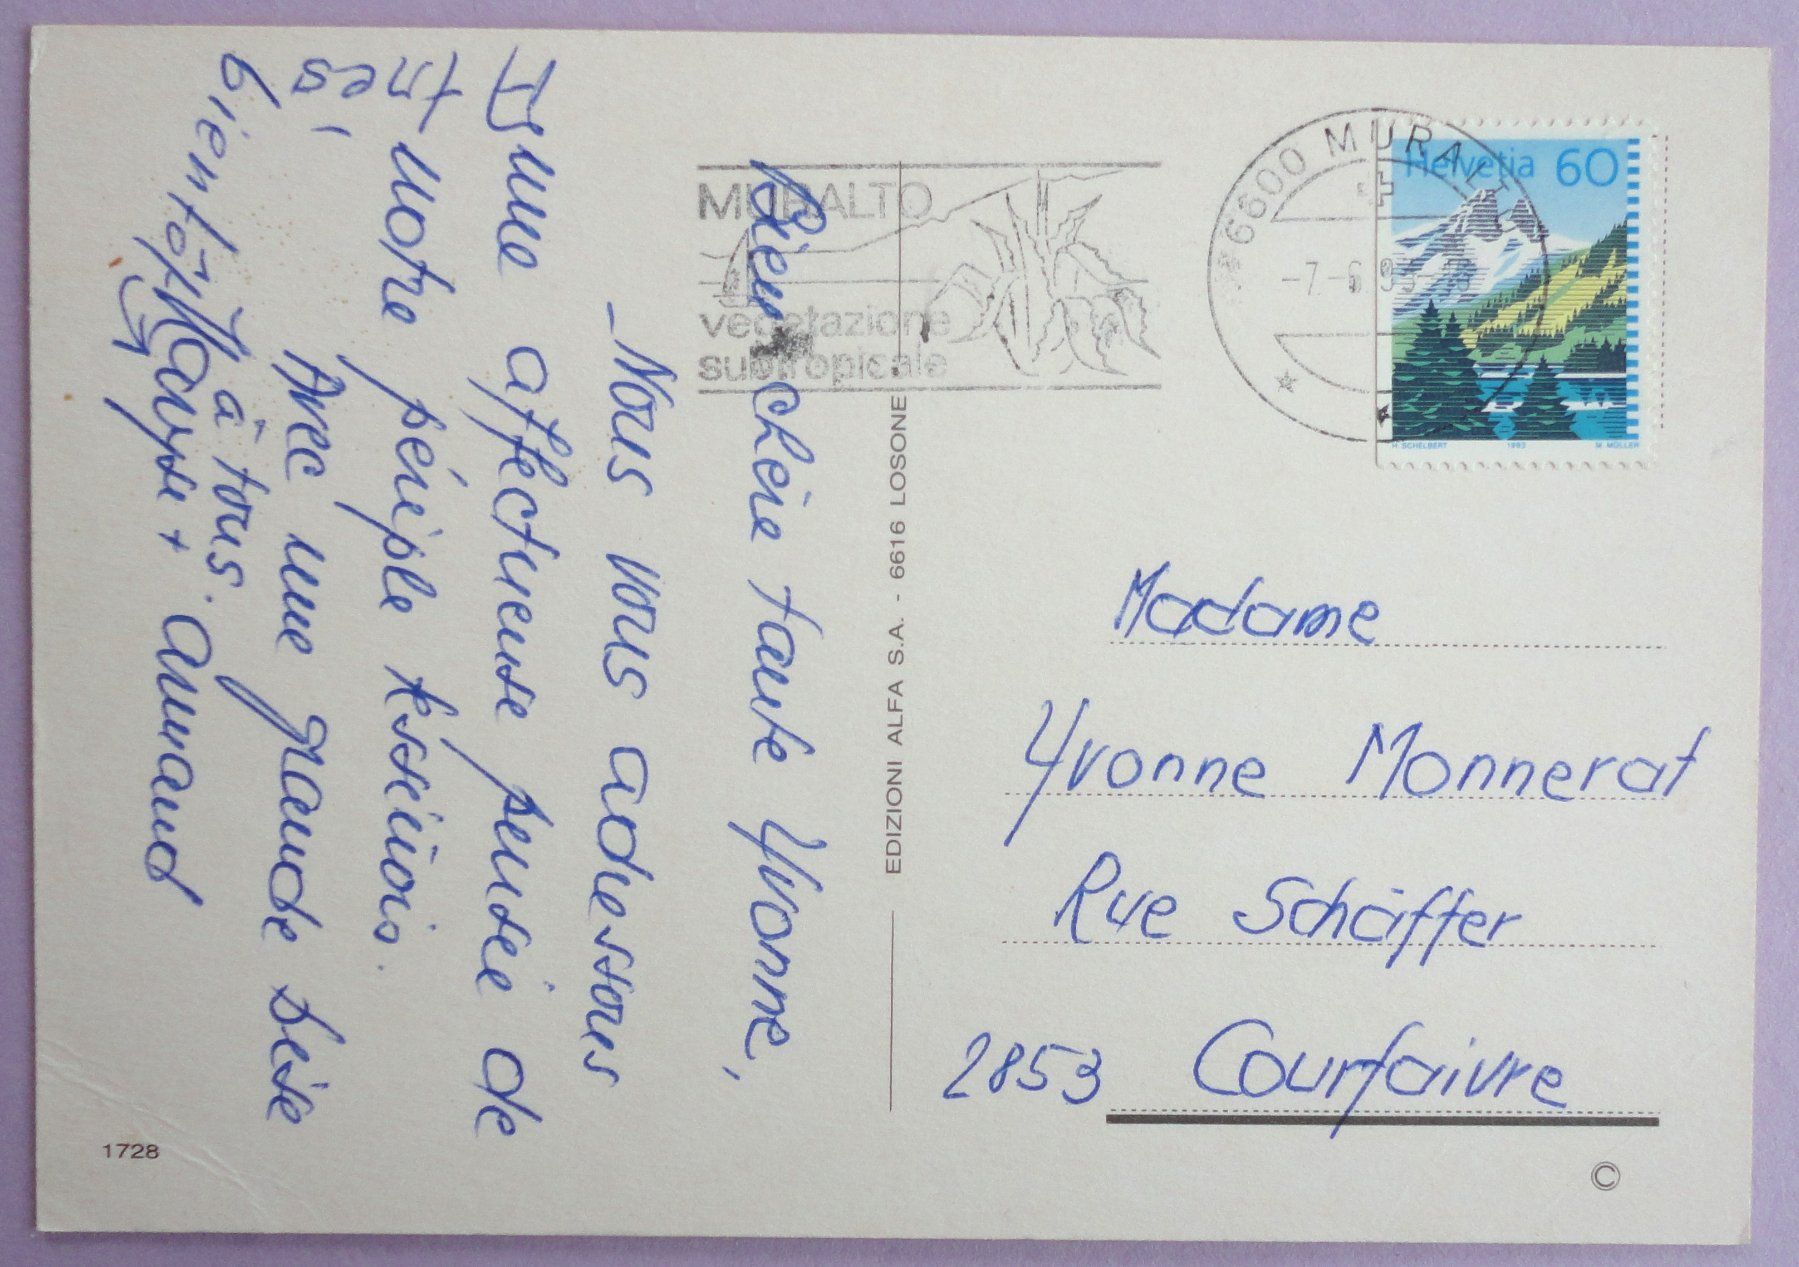 MURALTO
vegetazione
subtropicale
6600 MURALTO
Helvetia 60
H. SCHELBERT 1993 M. MÜLLER
Bien chère tante Yvonne,
Nous vous adressons
une affectueuse pensée de
notre périple tessinois.
Avec une grande bise
à tous.
Maryse + Armand
très
bientôt
EDIZIONI ALFA S.A. - 6616 LOSONE
Madame
Yvonne Monnerat
Rue Schäffer
2853 Courfaivre
1728
©